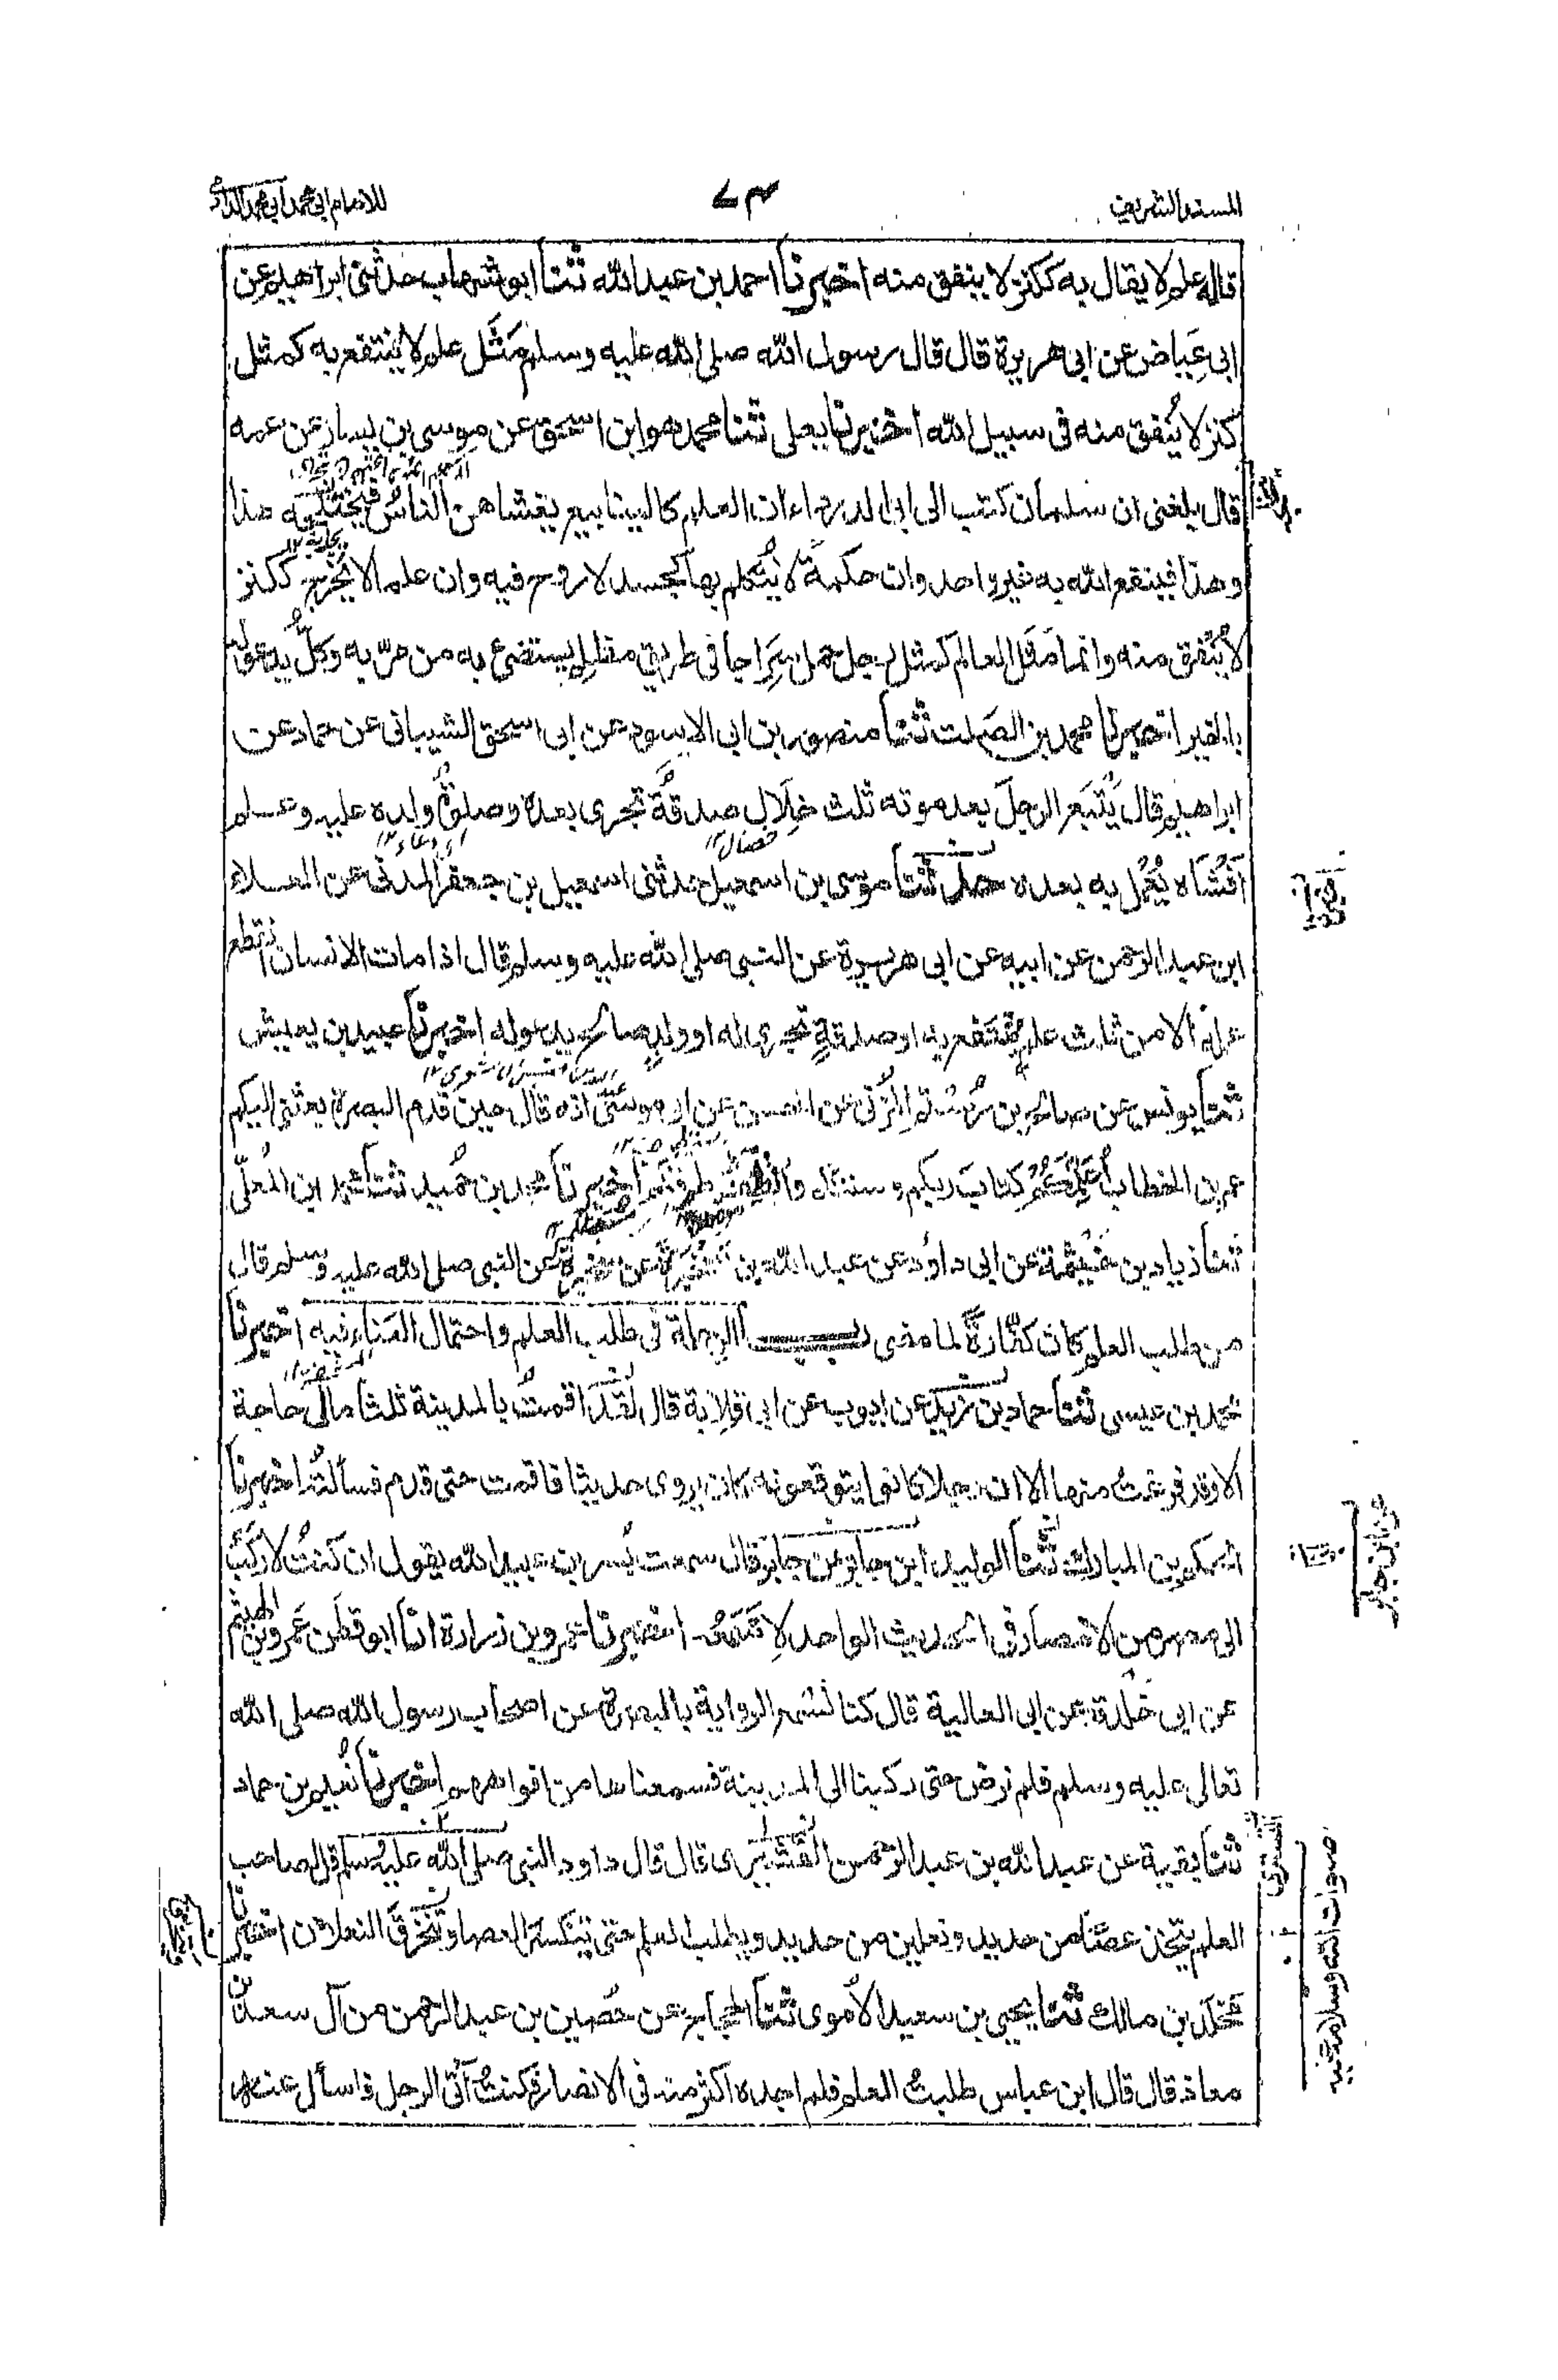 المسند الشريف
٧٣
للامام ابي محمد الدارمي
قال علم لا يقال به ككنز لا ينفق منه اخبرنا احمد بن عبد الله ثنا ابو شهاب حدثني ابراهيم عن
ابي عِياض عن ابي هريرة قال قال رسول الله صلى الله عليه وسلم مَثَل علم لا يُنتفع به كمثل
كنز لا يُنفق منه في سبيل الله اخبرنا يعلى ثنا محمد هو ابن اسحق عن موسى بن يسار عن عمه
قال بلغني ان سلمان كتب الى ابي الدرداء ان العلم كالينابيع يغشاهن الناسُ فيختلجه هذا
وهذا فينفع الله به غير واحد وان حكمةً لا يُتكلم بها كجسد لا روح فيه وان علما لا يُخرج ككنز
لا يُنفق منه وانما مَثَل العالم كمثل رجل حمل سِرَاجا في طريق مظلم يستضئ به من مرّ به وكلٌّ يدعو له
بالخير اخبرنا محمد بن الصَلت ثنا منصور بن ابي الاسود عن ابي اسحق الشيباني عن حماد عن
ابراهيم قال يَتْبَع الرجلَ بعد موته ثلث خِلَالٍ صدقةٌ تجري بعده وصلوةُ ولده عليه وعلم
خصال ١٢
اَفْشَاه يُعْمل به بعده حدثنا موسى بن اسمعيل حدثني اسمعيل بن جعفر المدني عن العلاء
ابن عبد الرحمن عن ابيه عن ابي هريرة عن النبي صلى الله عليه وسلم قال اذا مات الانسان انقطع
عمله الا من ثلث علم يُنتَفع به او صدقةٍ تجري له او ولدٍ صالح يدعو له اخبرنا عبيد بن يعيش
ثنا يونس عن صالح بن رُستُم المُزَني عن الحسن عن ابي موسى انه قال حين قدم البصرة بعثني اليكم
عمر بن الخطاب اُعَلِّمُكم كتابَ ربكم وسنتكم واُنظّف طرقكم اخبرنا محمد بن حُميد ثنا محمد ابن المُعلّى
ثنا زياد بن خَيْثمة عن ابي داوُد عن عبد الله بن سَخْبَرة عن سخبرة عن النبي صلى الله عليه وسلم قال
من طلب العلم كان كفّارةً لما مضى باب الرحلة في طلب العلم واحتمال العَناء فيه اخبرنا
محمد بن عيسى ثنا حماد بن زيد عن ايوب عن ابي قلابة قال لَقَدْ اقمتُ بالمدينة ثلثا مالي حاجة
الا وقد فرغتُ منها الا ان رجلا كانوا يتوقعونه كان يروي حديثا فاقمت حتى قدم فسألتُه اخبرنا
الحكم بن المبارك ثنا الوليد ابن جابر عن جابر قال سمعت بُسر بن عبيد الله يقول ان كنتُ لاركبُ
الى مصر من الامصار في الحديث الواحد لِاَسْمَعَه اخبرنا عمرو بن زرارة انا ابو قطَن عَمرو بن الهيثم
عن ابي خَلْدة عن ابي العالية قال كنا نسْمع الرواية بالبصرة عن اصحاب رسول الله صلى الله
تعالى عليه وسلم فلم نرض حتى ركبنا الى المدينة فسمعناها من افواههم اخبرنا نُعيم بن حماد
ثنا بقية عن عبد الله بن عبد الرحمن القُشَيْري قال قال داود النبي صلى الله عليه وسلم قل لصاحب
العلم يتّخذ عصًا من حديد ونعلين من حديد ويطلب العلم حتى تنكسر العصا وتَنْخَرِقَ النعلان اخبرنا
مَخْلَد بن مالك ثنا يحيى بن سعيد الاُموي ثنا الحجاج عن حُصين بن عبد الرحمن من آل سعد بن
معاذ قال قال ابن عباس طلبتُ العلم فلم اجده اكثر منه في الانصار فكنتُ آتي الرجل فاسأل عنه
عن ابن جابر
صلوات الله وسلامه عليه